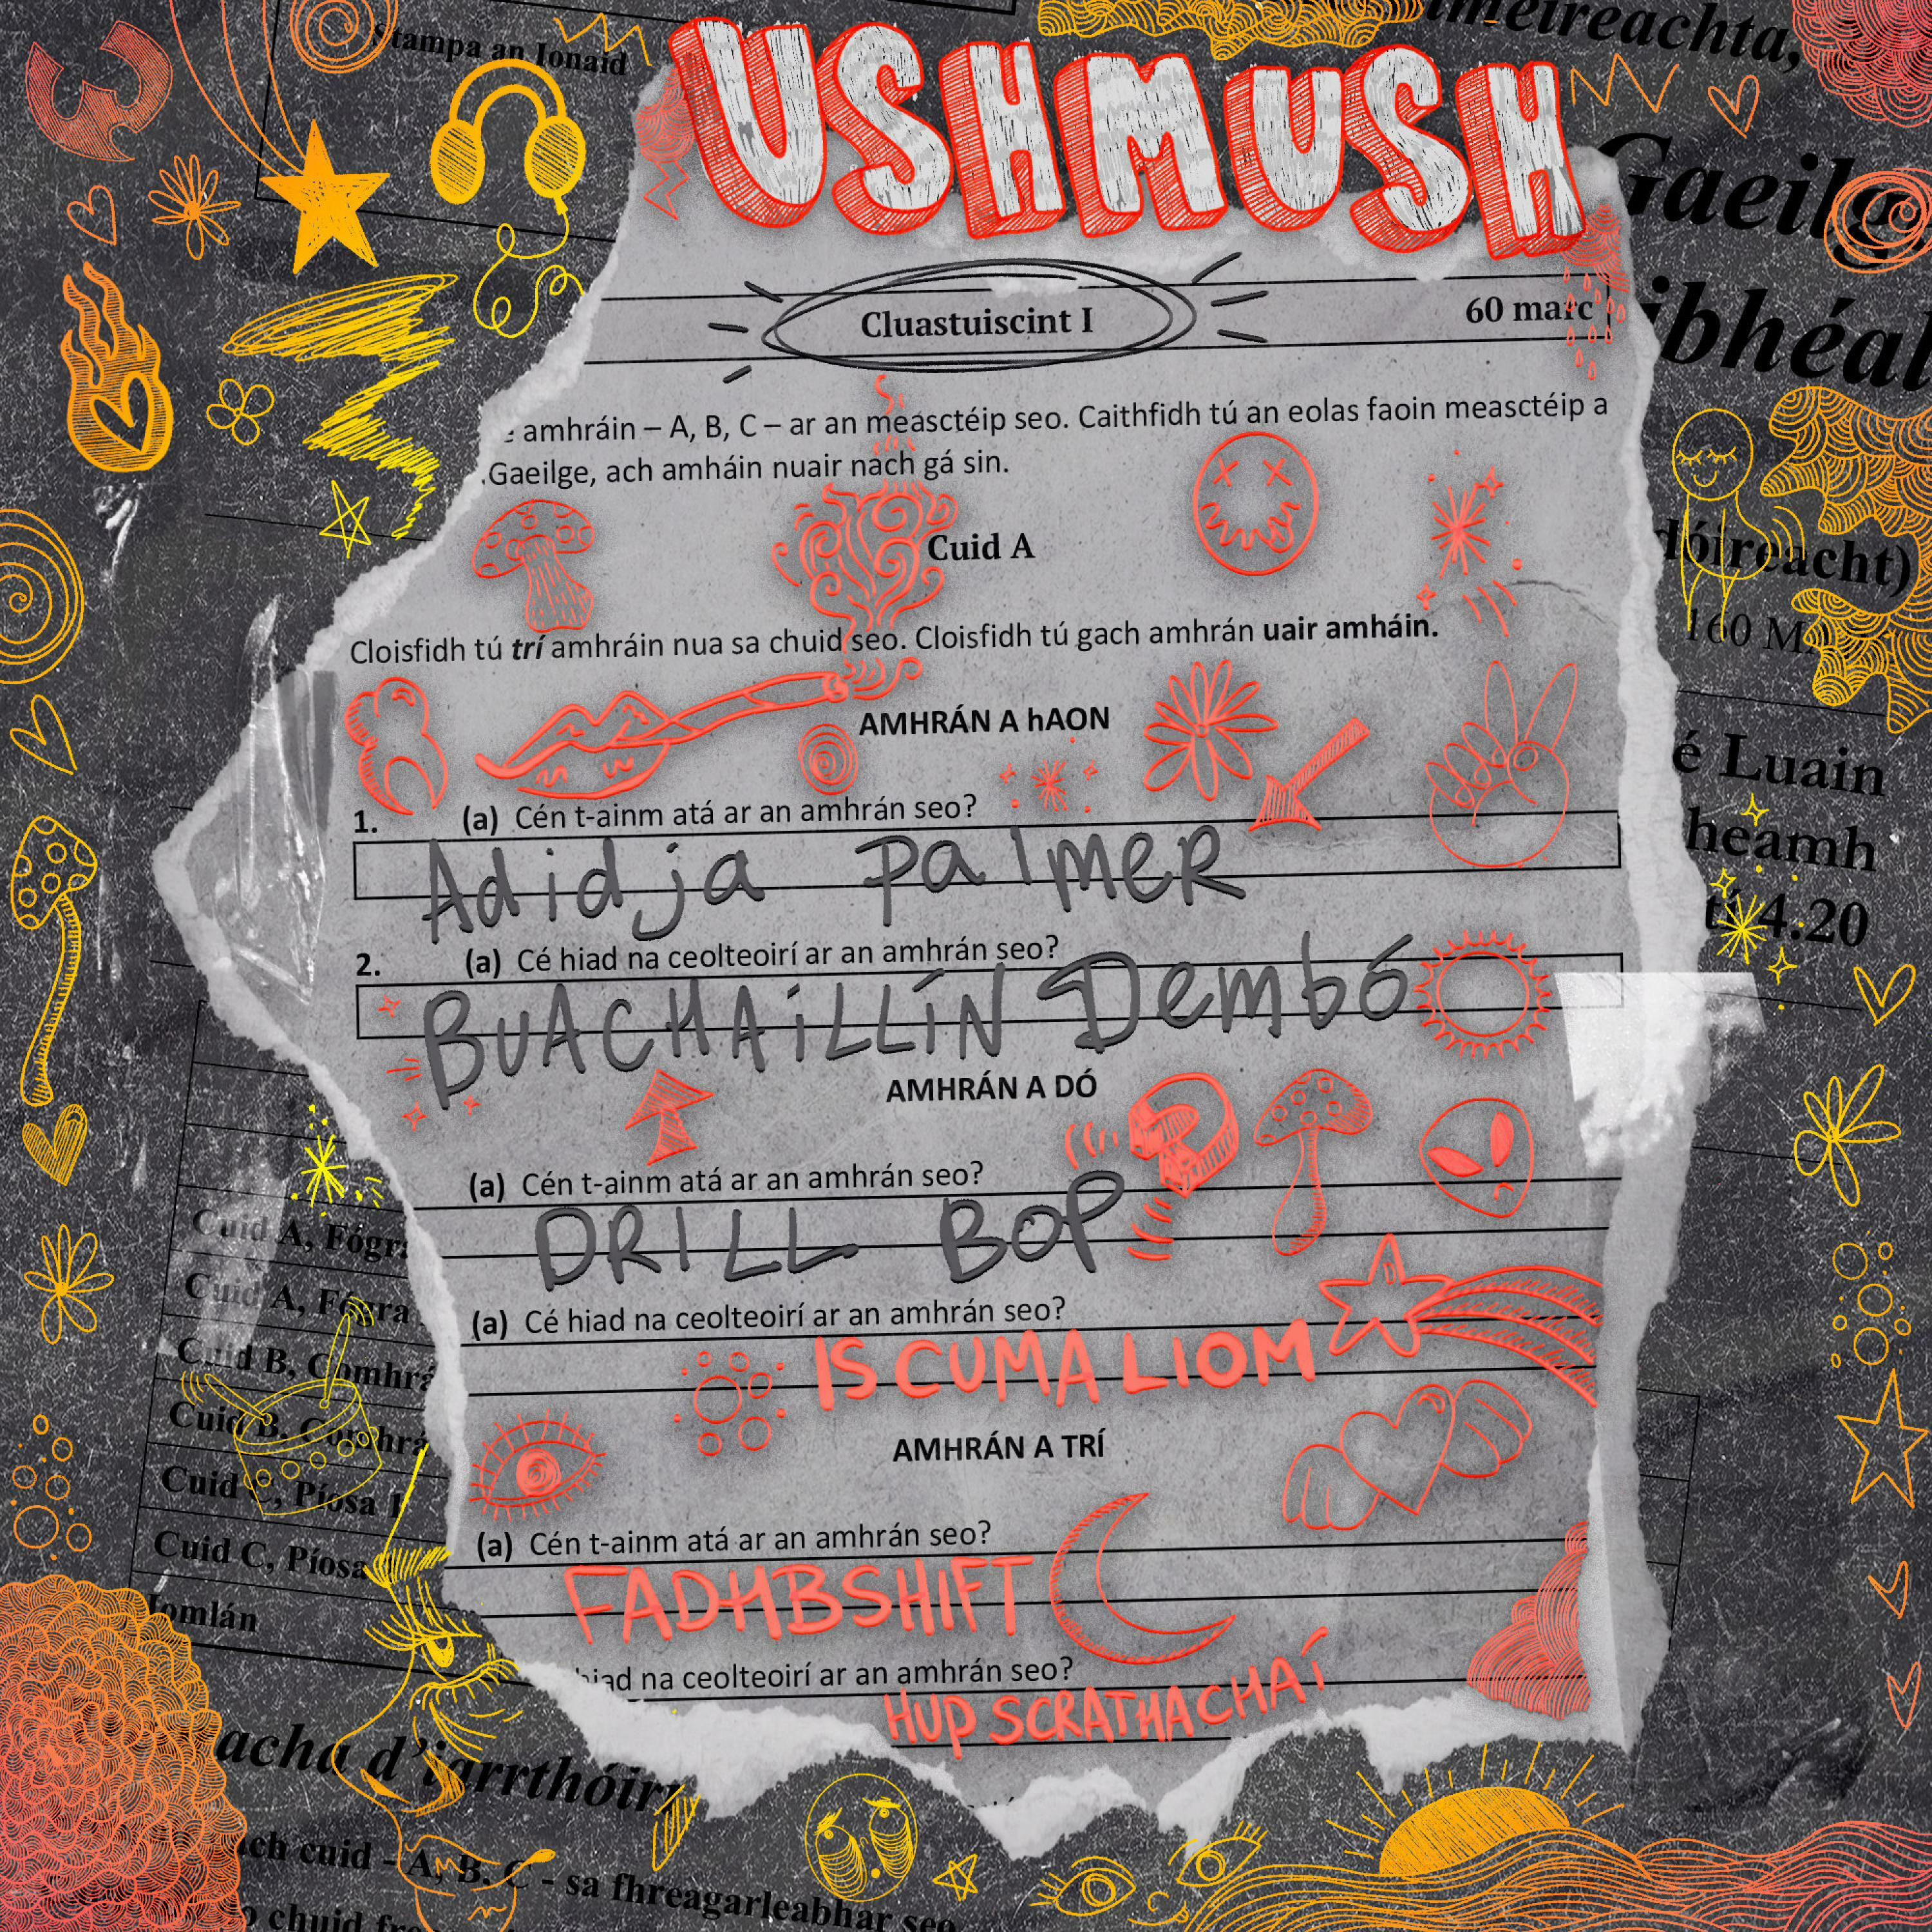 Stampa an Ionaid
USHMUSH
Gaeilg
ibhéal
Cluastuiscint I
60 marc
amhráin – A, B, C – ar an measctéip seo. Caithfidh tú an eolas faoin measctéip a
Gaeilge, ach amháin nuair nach gá sin.
Cuid A
dóireacht)
160 MA
Cloisfidh tú trí amhráin nua sa chuid seo. Cloisfidh tú gach amhrán uair amháin.
AMHRÁN A hAON
é Luain
heamh
4.20
1. (a) Cén t-ainm atá ar an amhrán seo?
Adidja PalmeR
2. (a) Cé hiad na ceolteoirí ar an amhrán seo?
BUACHAiLLíN Dembó
AMHRÁN A DÓ
(a) Cén t-ainm atá ar an amhrán seo?
DRILL BOP
(a) Cé hiad na ceolteoirí ar an amhrán seo?
IS CUMA LIOM
AMHRÁN A TRÍ
(a) Cén t-ainm atá ar an amhrán seo?
FADHBSHIFT
hiad na ceolteoirí ar an amhrán seo?
HUP SCRATHACHAÍ
Cuid A, Fógra
Cuid A, Fógra
Cuid B, Comhrá
Cuid B, Comhrá
Cuid C, Píosa
Cuid C, Píosa
Iomlán
acha d'iarrthóirí
ach cuid - A, B, C - sa fhreagarleabhar seo
chuid